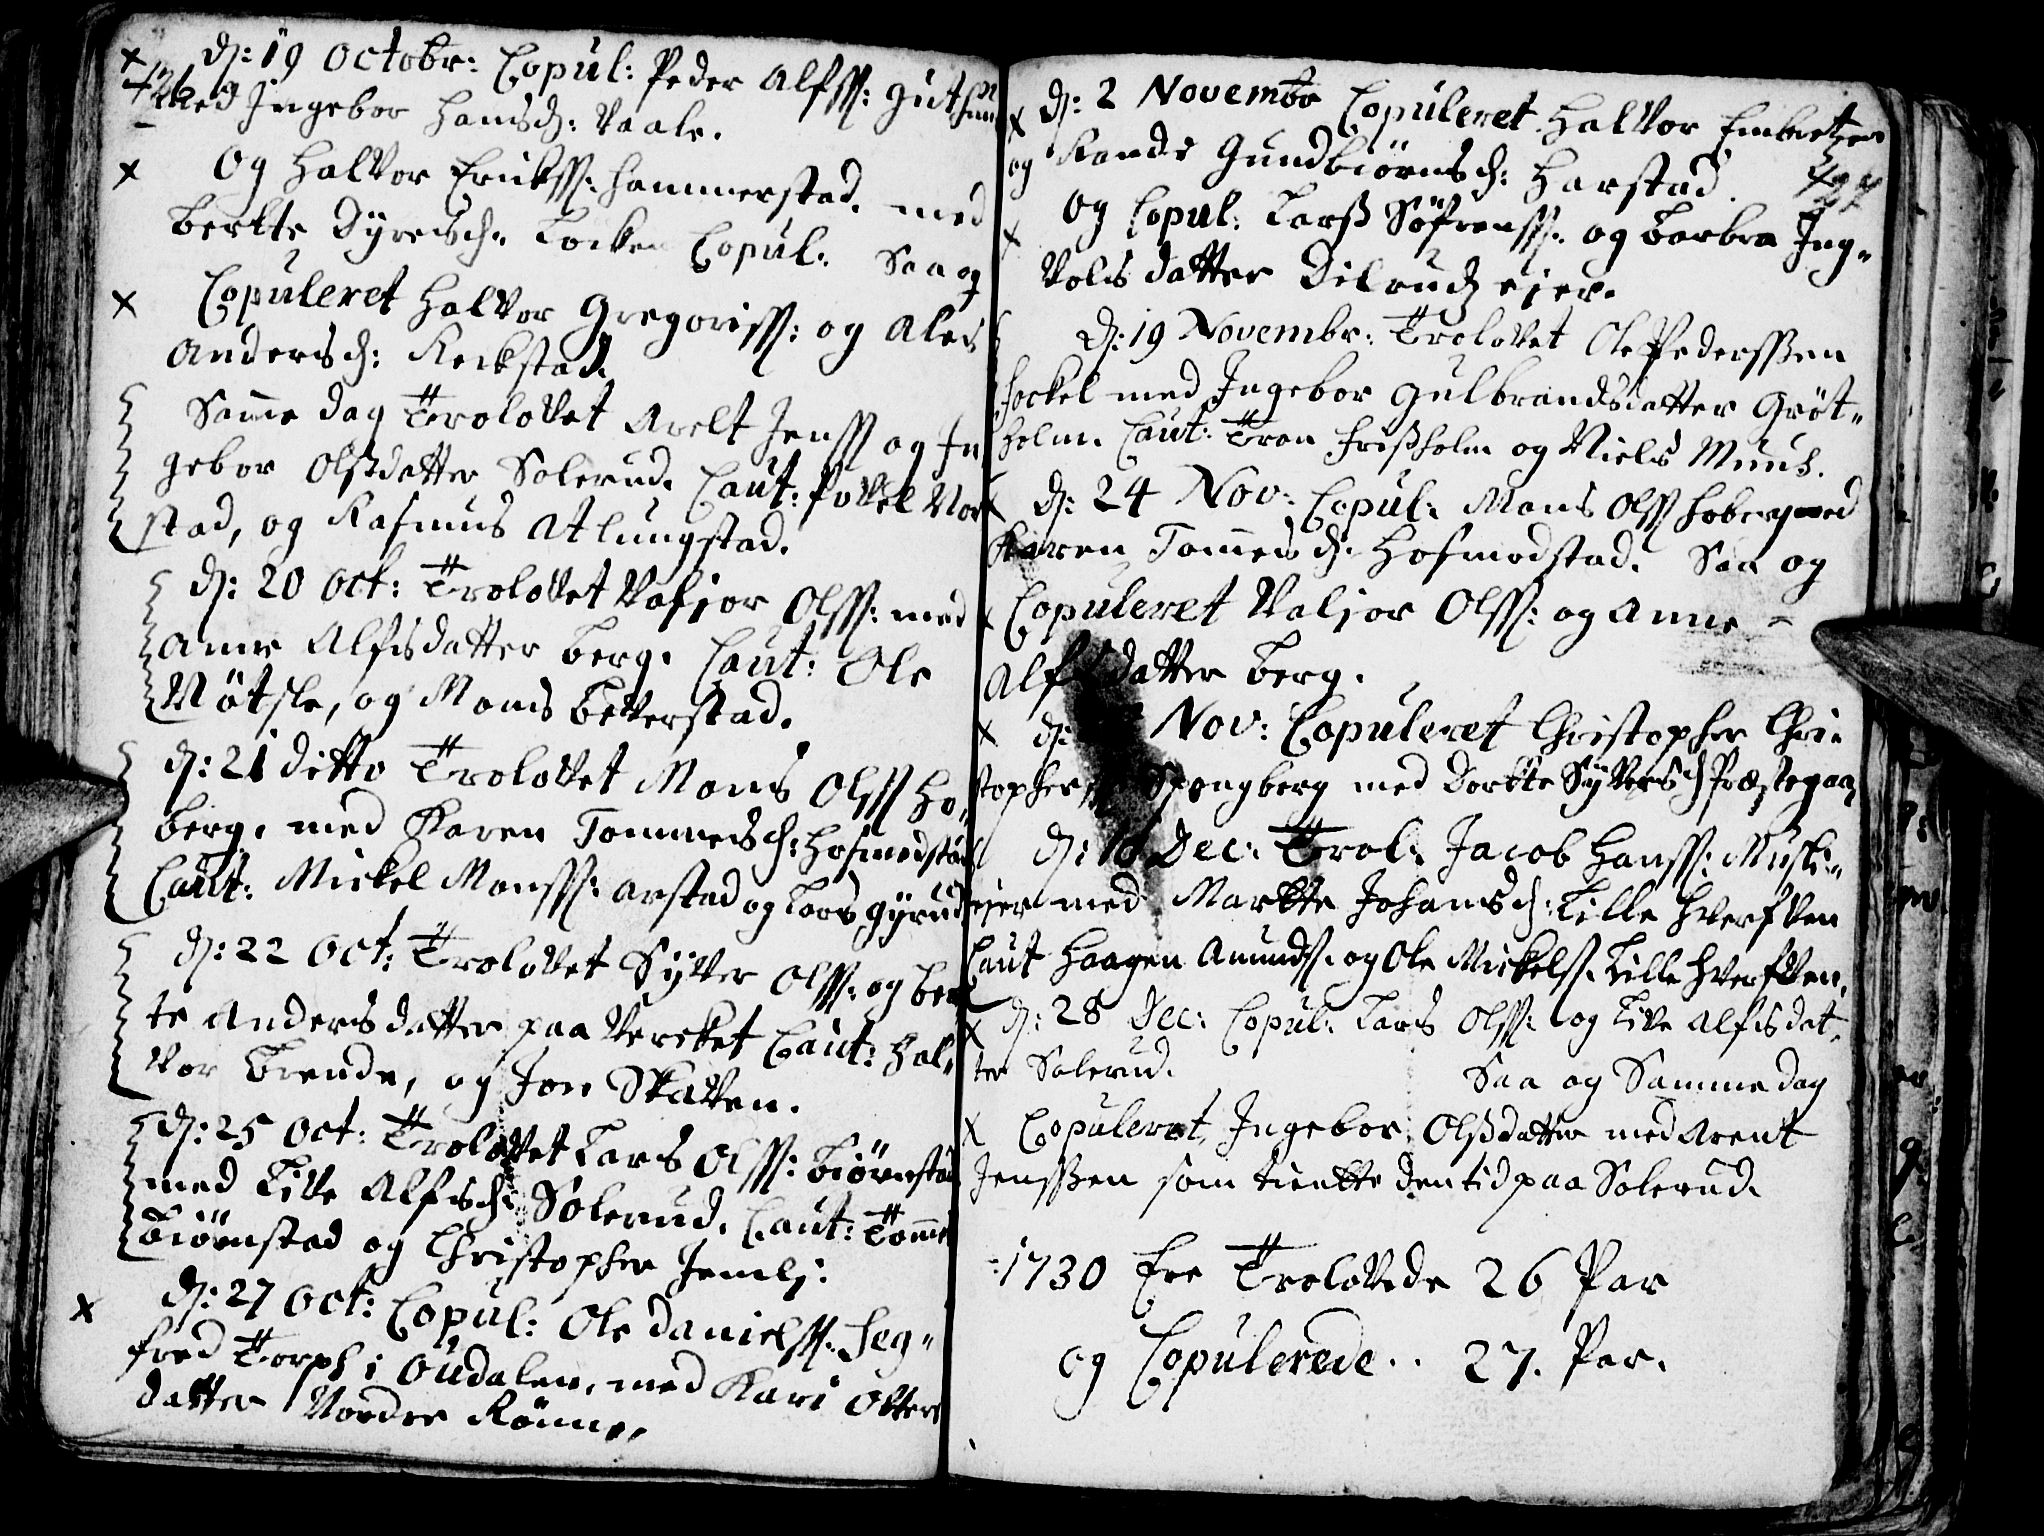 d: 19 Octobr: Copul: Peder Alfss:
Med Ingebor Hansd: Vaale.
Og Halvor Erickss: Hammerstad, med
Berthe Dyresd: Locken Copul: Saa og
Copuleret Halvor Gregoriss: og Ales
Andersd: Reckstad.
Samme dag Trolovet Arelt Jenss og In
gebor Olsdatter Solerud. Caut: Povel Nor
stad, og Rasmus Atlungstad.
d: 20 Oct: Trolovet Valjor Olss: med
Anne Alfisdatter Berg. Caut: Ole
Nötsle, og Mons Beverstad.
d: 21 ditto Trolovet Mons Olss Ho„
berg. med Karen Tommesd: Hofmodstad
Caut: Mickel Monss: Arstad og Lars Gyrud
d: 22 Oct: Trolovet Sylver Olss: og Ber
te Andersdatter paa Vercket Caut: Hal„
vor Bernde, og Jon Skatten.
d: 25 Oct: Trolovet Lars Olss: Biörnstad
med Live Alfisd: Solerud. Caut: Tomme
Biörnstad og Christopher Jemli:
d: 27 Oct: Copul: Ole Danielss: Seg„
fred Torph i Oudalen, med Kari Otters
datter Norder Rönne,
d: 2 Novembr Copuleret Halvor Embretzen
og Rande Gundbiörnsd: Harstad. 427
Og Copul: Larss Söfrenss: og Barbra Ing„
volsdatter Dilrud ejer.
d: 19 Novembr: Trolovet Ole Pederssen
Sockel med Ingebor Gulbrandsdatter Gröt„
holm. Caut: Tron Frissholm og Niels Muus.
d: 24 Nov: Copul: Mons Olss Hoberg med
Karen Tommesd: Hofmodstad. Saa og
Copuleret Valjor Olss: og Anne -
Alfisdatter Berg.
d: Nov: Copuleret Christopher Chri„
stopherss Spongberg med Dorthe Sylversd Præstegaa
d: 10 Dec: Trol. Jacob Hanss: Musti„
ejer med Marthe Johansd: Lille Hverfven
Caut Haagen Amunds. og Ole Mickels. Lille Hverfven,
d: 28 Dec: Copul: Lars Olss: og Live Alfisdat„
ter Solerud. Saa og Samme dag
Copuleret Ingebor Olsdatter med Arent
Jenssen som tiente den tid paa Solerud.
1730 Ere Trolovede 26 Par
og Copulerede.. 27. Par.